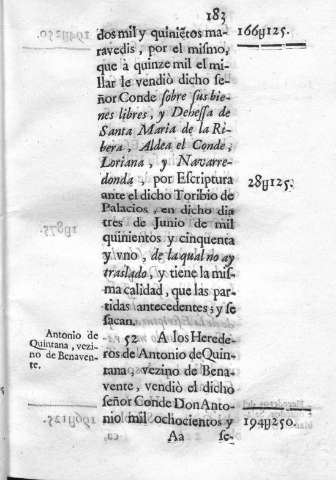 183
dos mil y quiniẽtos ma-
ravedis, por el mismo,
que à quinze mil el mi-
llar le vendiò dicho se-
ñor Conde sobre sus bie-
nes libres, y Dehessa de
Santa Maria de la Ri-
bera, Aldea el Conde,
Loriana, y Navarre-
donda, por Escriptura
ante el dicho Toribio de
Palacios, en dicho dia
tres de Junio de mil
quinientos y cinquenta
y vno, de la qual no ay
traslado, y tiene la mis-
ma calidad, que las par-
tidas antecedentes; y se
sacan.
52 A los Herede-
ros de Antonio de Quin-
tana, vezino de Bena-
vente, vendiò el dicho
señor Conde Don Anto-
nio mil ochocientos y
Aa se-
166y125.
28y125.
194y250.
Antonio de
Quintana, vezi-
no de Benaven-
te.